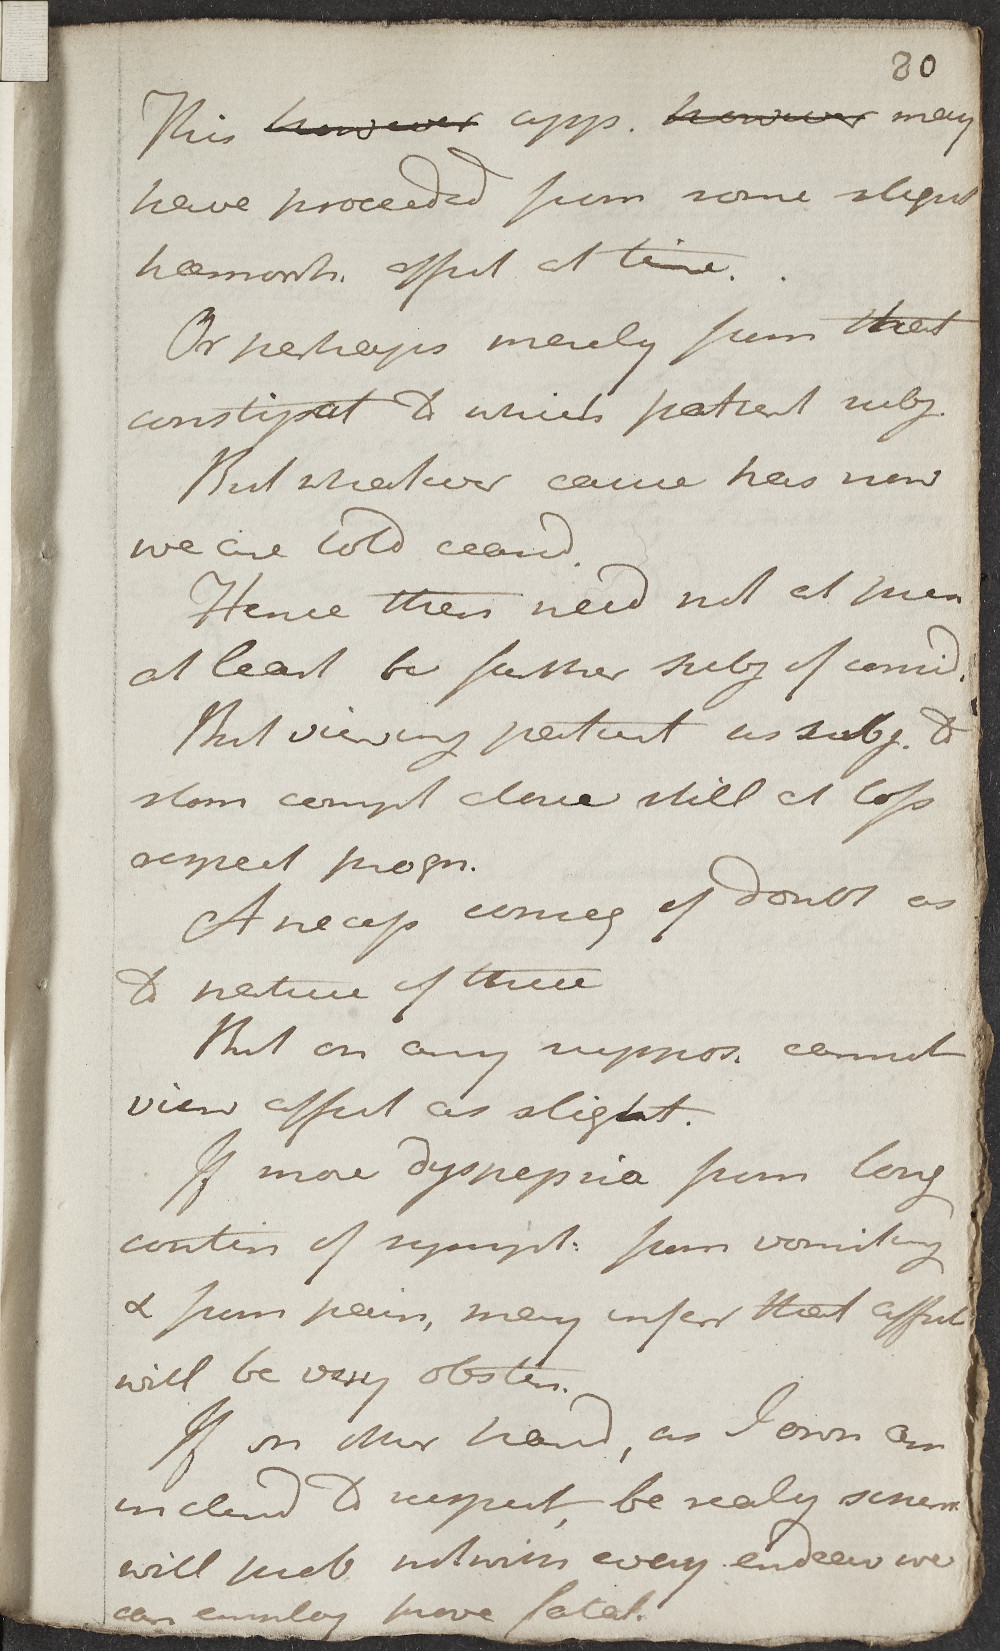 80
This however app. however may
have proceeded from some slight
hæmorrh. affect at time.
Or perhaps merely from that
constipat to which patient subj.
But whatever cause has now
we are told ceased.
Hence then need not at presn
at least be further subj of consid.
But viewing patient as subj. to
stom compl alone still at loss
respect progn.
A necess conseq of doubt as
to nature of these
But on any suppos. cannot
view affect as slight.
If mere dyspepsia from long
contin of sympt: from vomiting
& from pain, may infer that affect
will be very obstin.
If on other hand, as I own am
inclind to suspect, be realy
will prob notwiths every endeav we
can employ prove fatal.